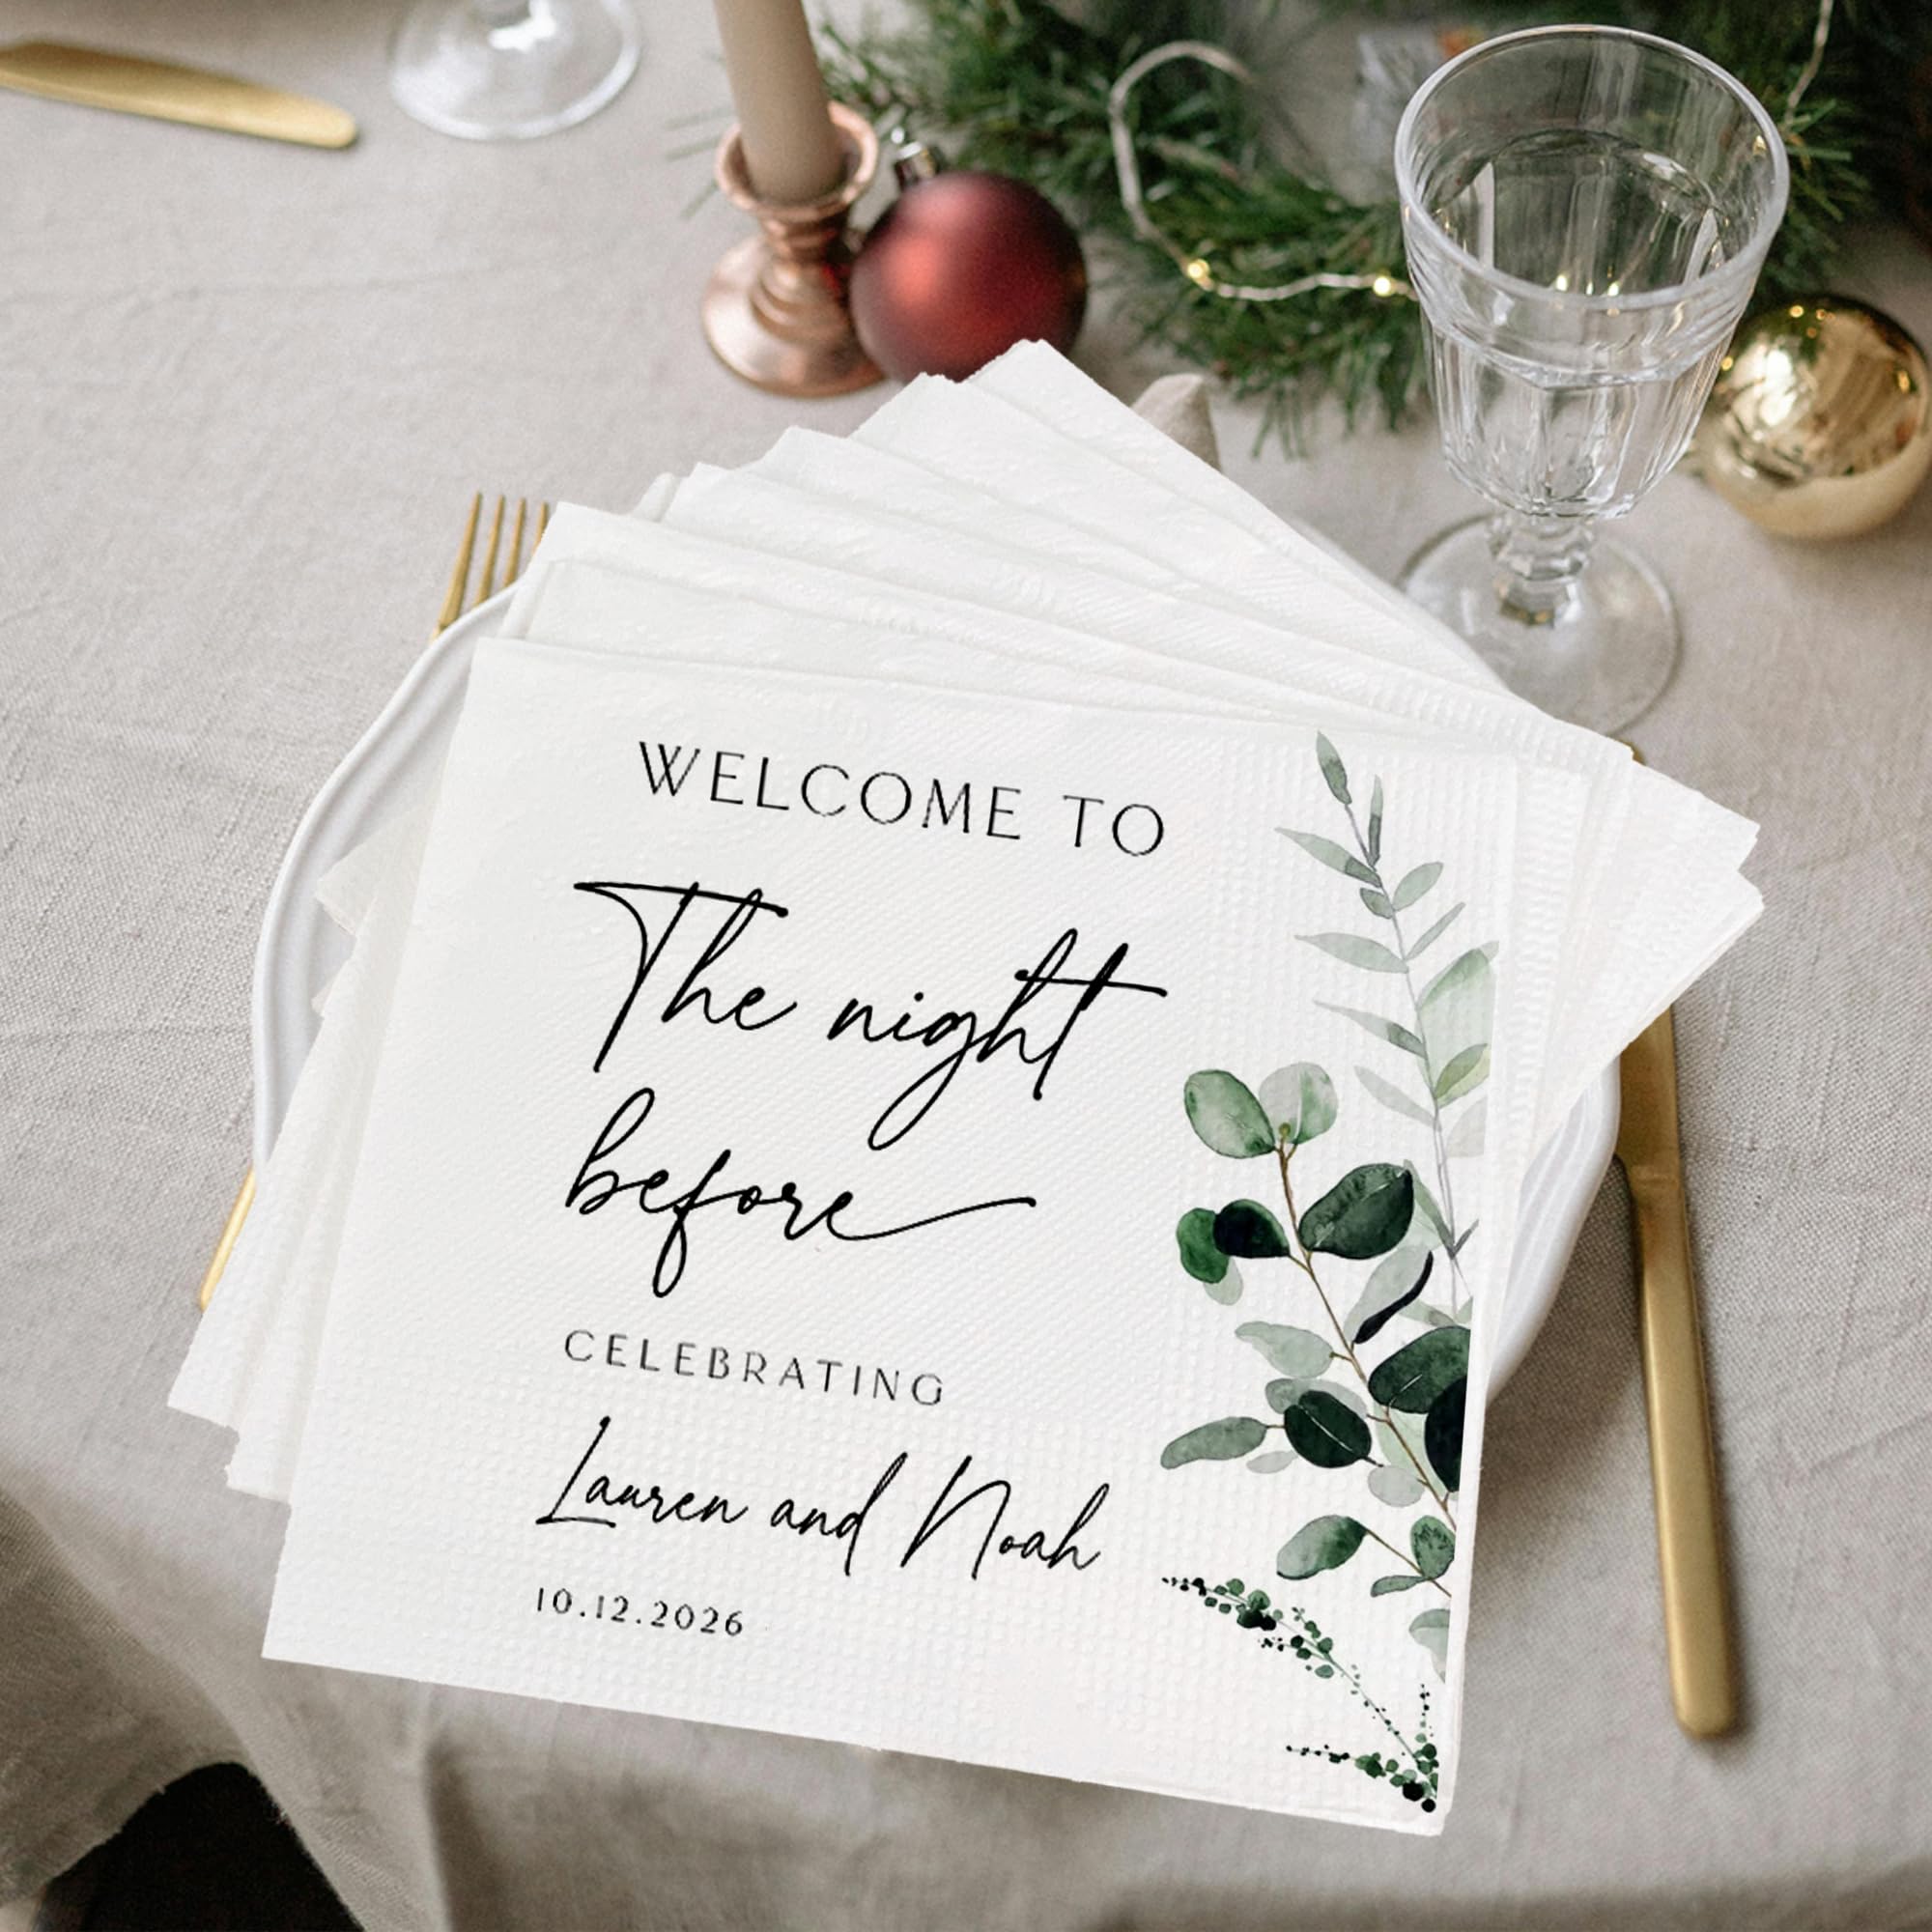 WELCOME TO
The night
before
CELEBRATING
Lauren and Noah
10.12.2026